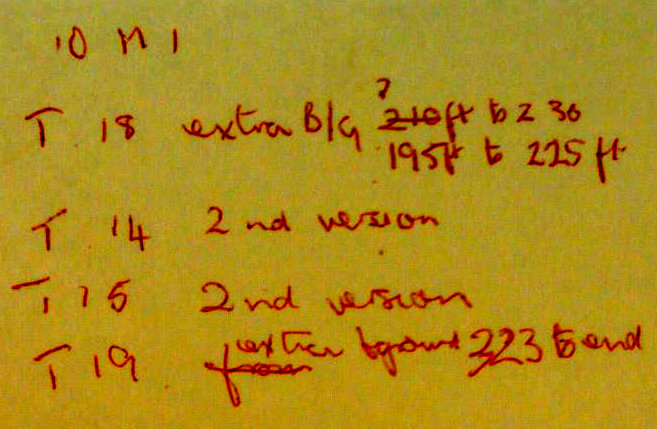 10 M 1
T 18 extra B/G ? 210ft to 230
195ft to 225 ft
T 14 2nd version
T 15 2nd version
T 19 from extra bground 223 to end